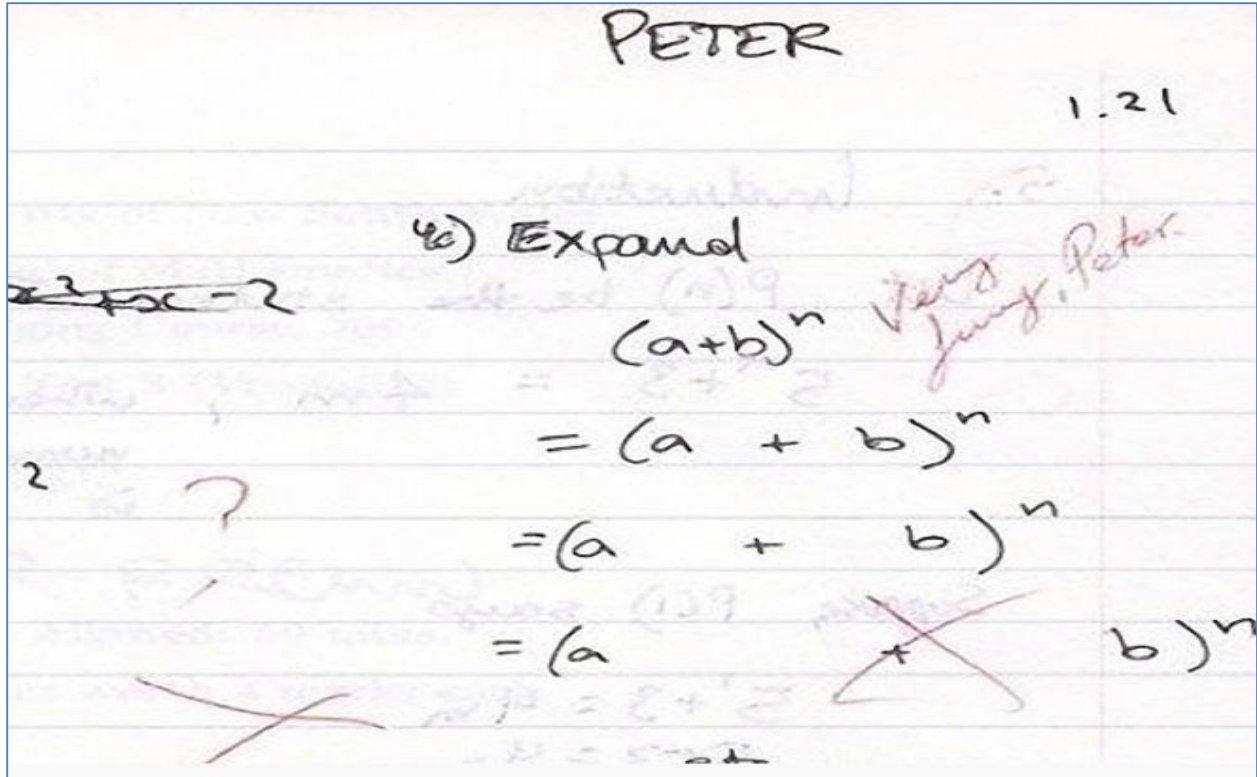 PETER
1.21
4c) Expand
x²+x-2
(a+b)ⁿ
Very
funny, Peter.
= (a + b)ⁿ
2
?
=(a + b)ⁿ
= (a + b)ⁿ